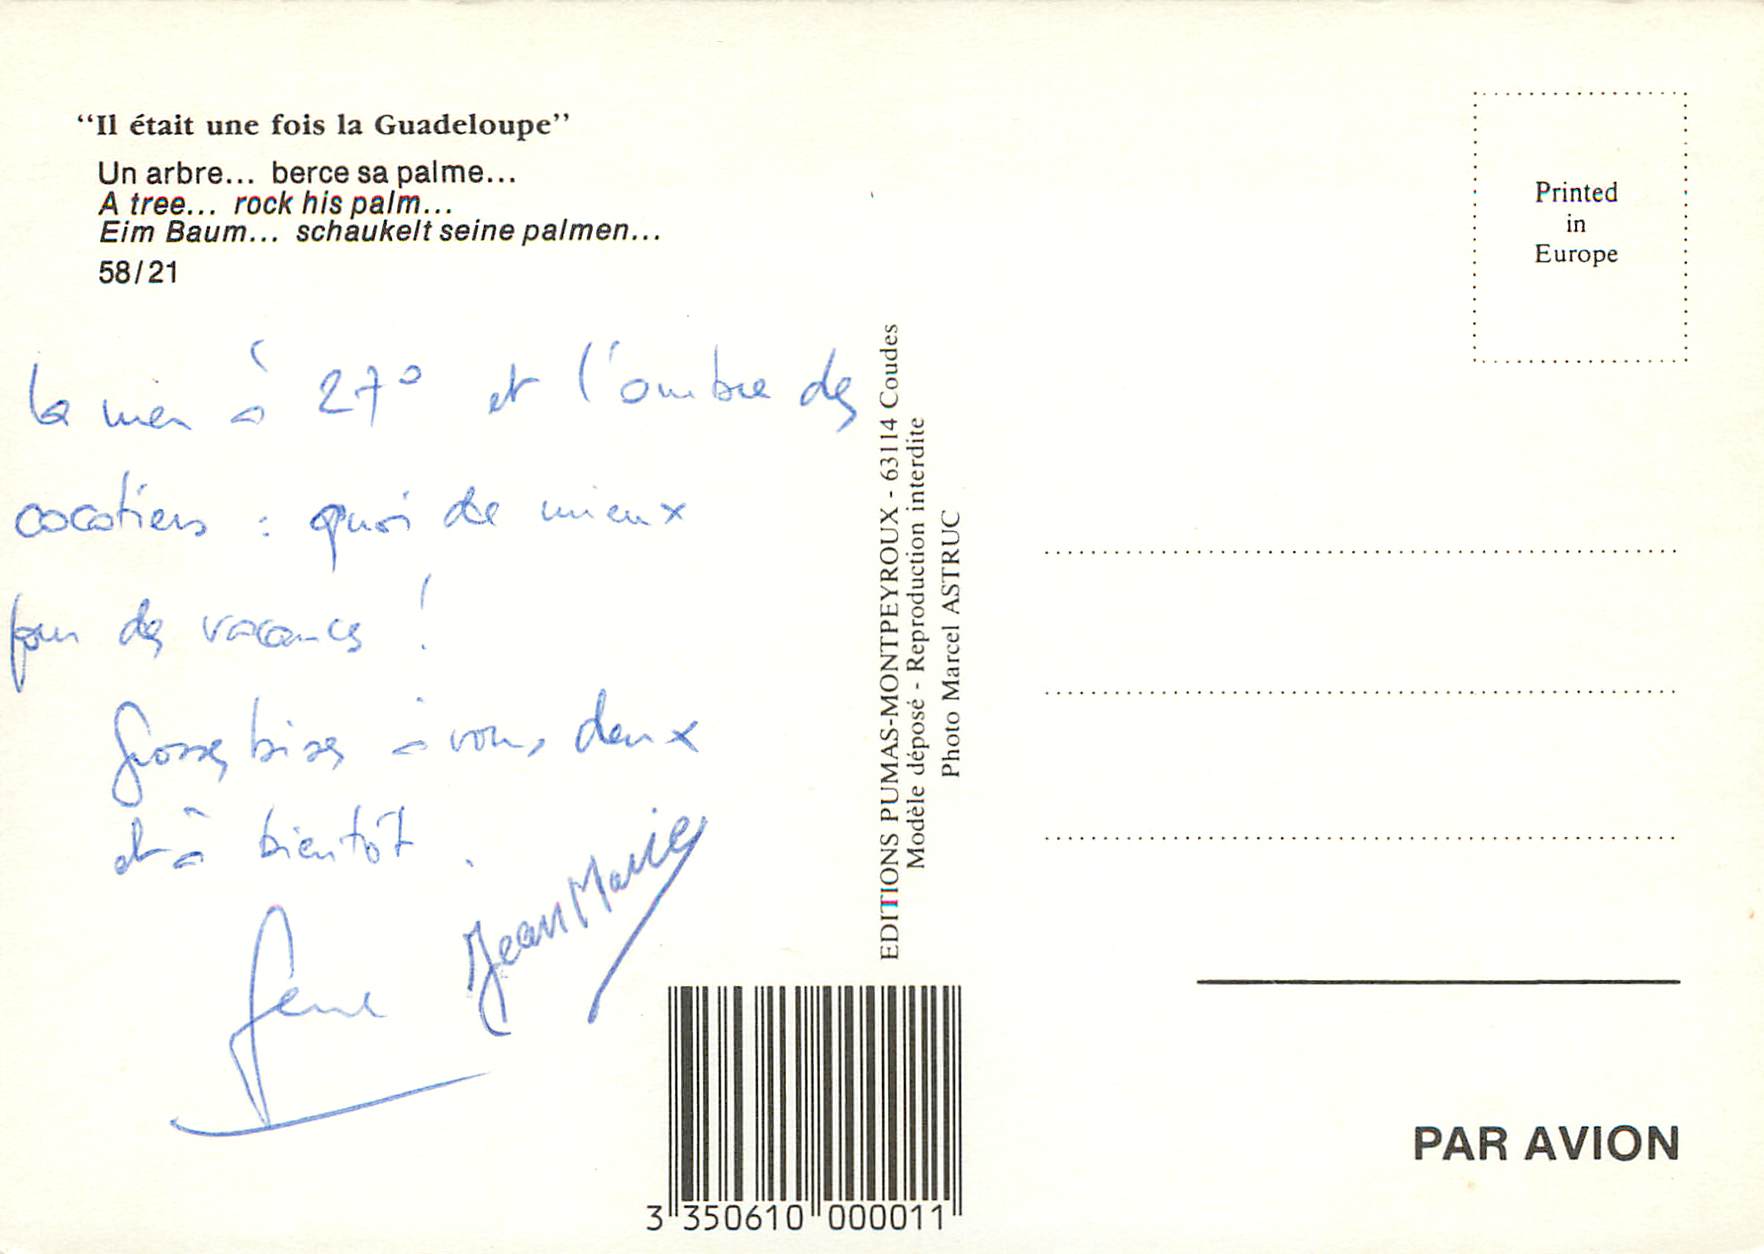 “Il était une fois la Guadeloupe”
Un arbre... berce sa palme...
A tree... rock his palm...
Eim Baum... schaukelt seine palmen...
58/21
la mer à 27° et l'ombre des
cocotiers : quoi de mieux
pour des vacances !
Grosses bises à vous deux
et à bientôt.
Jean Marie
EDITIONS PUMAS-MONTPEYROUX - 63114 Coudes
Modèle déposé - Reproduction interdite
Photo Marcel ASTRUC
3 350610 000011
Printed
in
Europe
PAR AVION